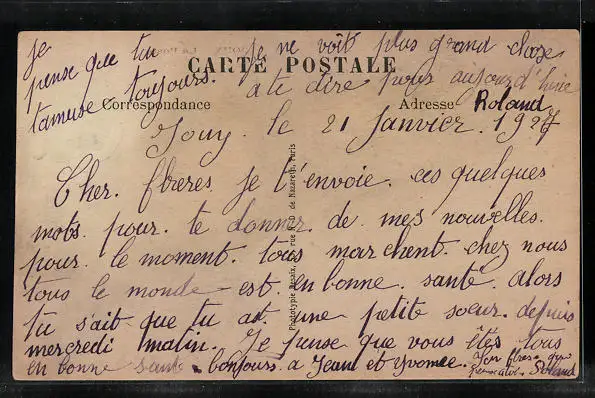 je
pense que tu
tamuse toujours.
je ne voit plus grand chose
a te dire pour aujourd'huie
CARTE POSTALE
Correspondance
Adresse
Roland
Jouy. le 21 Janvier. 1927
Cher. frères je t'envoie. ces quelques
mots. pour. te donner. de. mes nouvelles.
pour. le moment. tous marchent. chez nous
tous le monde est. en bonne. santé. alors
tu s'ait que tu as une petite soeur. depuis
mercredi matin. Je pense que vous êtes tous
en bonne santé. bonjours. a Jean et Yvonne.
Ton frère qui
Roland
Phototypie rue N.-D. de Nazareth, Paris